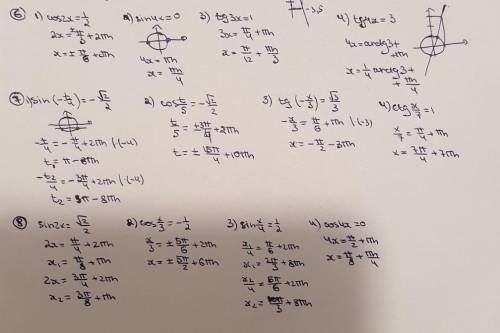 6 1) cos2x = 1/2
2x = ±π/3 + 2πn
x = ± π/6 + πn
2) sin4x = 0
4x = πn
x = πn/4
3) tg3x = 1
3x = π/4 + πn
x = π/12 + πn/3
4) tg4x = 3
4x = arctg3 + πn
x = 1/4 arctg3 + πn/4
7 1) sin(-t/4) = -√2/2
-t/4 = -π/4 + 2πn |·(-4)
t₁ = π - 8πn
-t₂/4 = -3π/4 + 2πn |·(-4)
t₂ = 3π - 8πn
2) cos t/5 = -√2/2
t/5 = ± 3π/4 + 2πn
t = ± 15π/4 + 10πn
3) tg(-x/3) = √3/3
-x/3 = π/6 + πn |·(-3)
x = -π/2 - 3πn
4) ctg x/7 = 1
x/7 = π/4 + πn
x = 7π/4 + 7πn
8 sin2x = √2/2
2x = π/4 + 2πn
x₁ = π/8 + πn
2x = 3π/4 + 2πn
x₂ = 3π/8 + πn
2) cos x/3 = -1/2
x/3 = ± 5π/6 + 2πn
x = ± 5π/2 + 6πn
3) sin x/4 = 1/2
x₁/4 = π/6 + 2πn
x₁ = 2π/3 + 8πn
x₂/4 = 5π/6 + 2πn
x₂ = 10π/3 + 8πn
4) cos4x = 0
4x = π/2 + πn
x = π/8 + πn/4